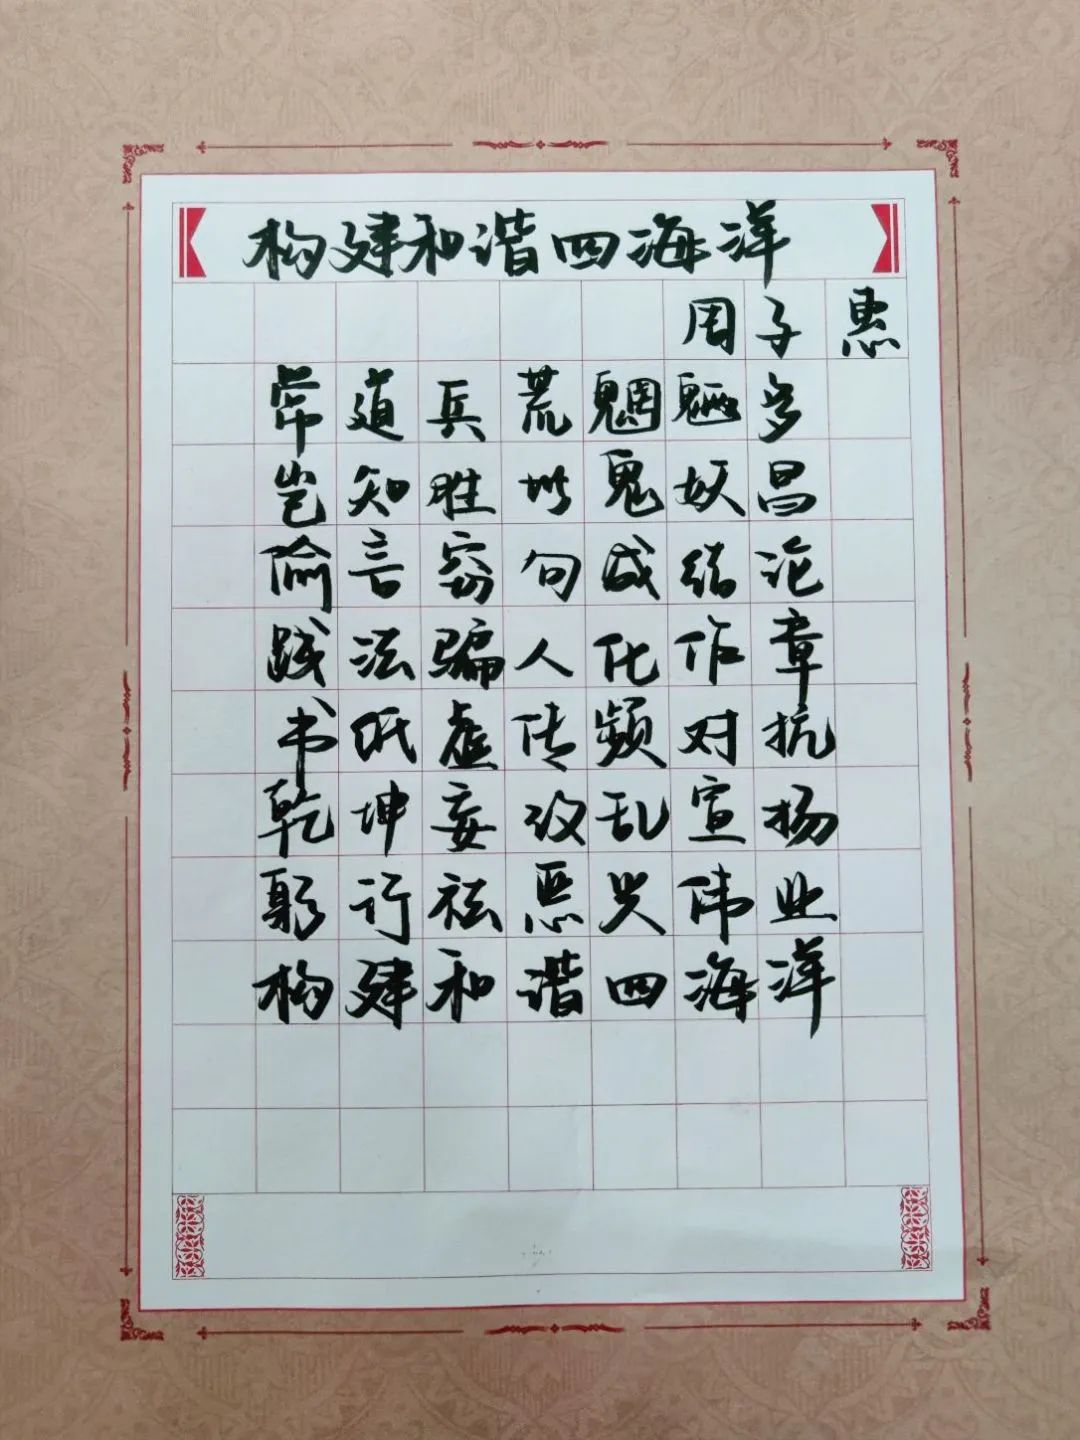 构建和谐四海洋
周子惠
常道兵荒魍魉多
岂知胜似鬼妖昌
偷言窃句成结论
践法骗人化作章
书纸虚传频对抗
乾坤妄改乱宣扬
躬行祛恶兴伟业
构建和谐四海洋